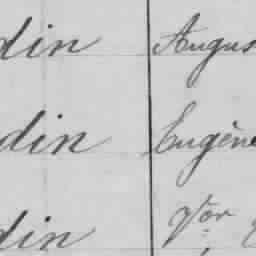 din Augus
din Eugène
din Vor